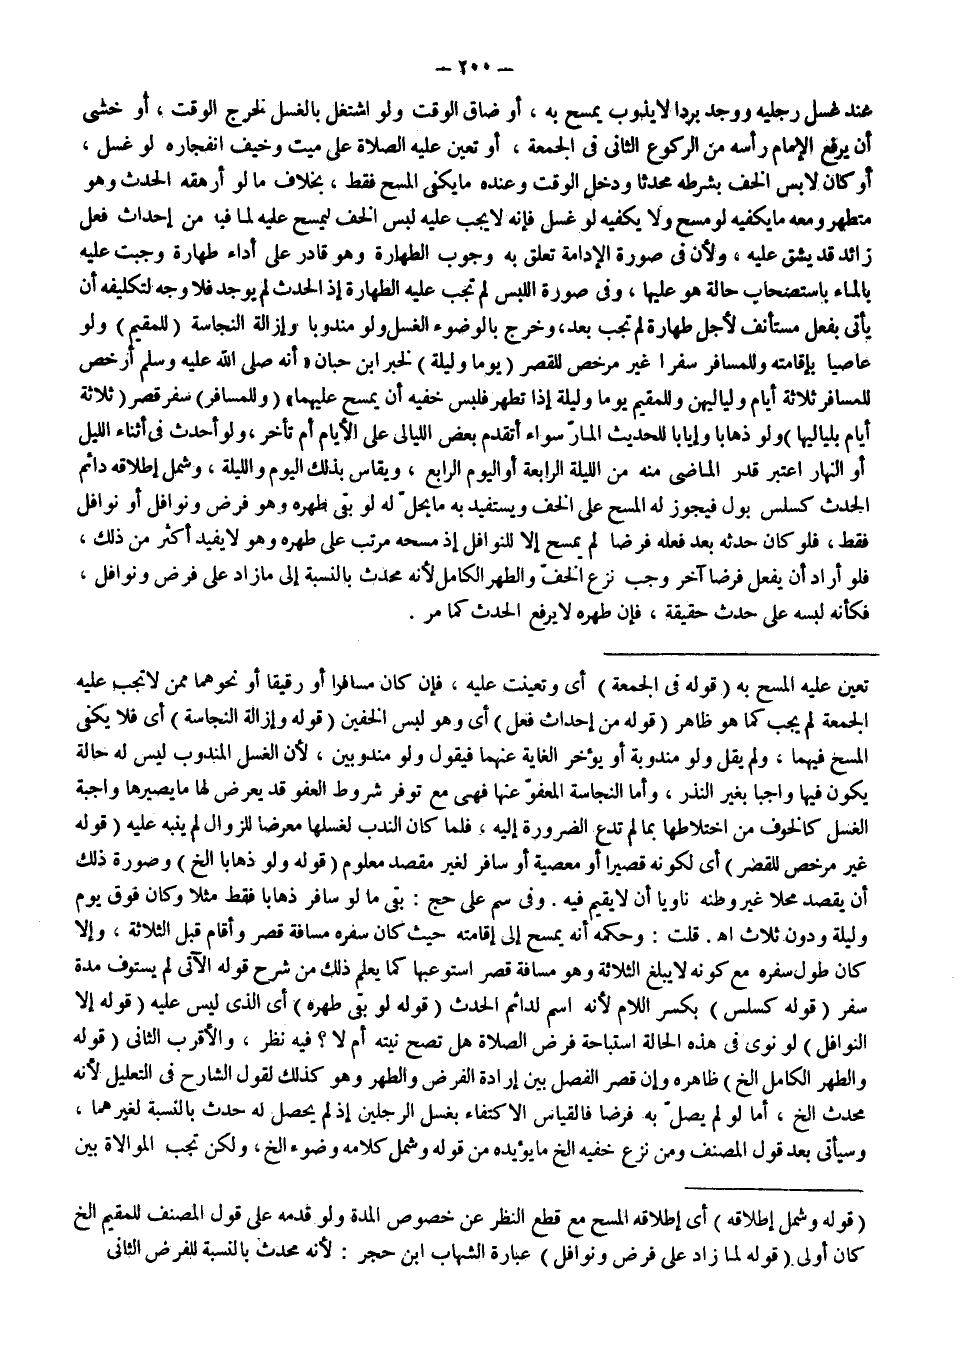 – ٢٠٠ –
عند غسل رجليه ووجد بردا لايذوب يمسح به ، أو ضاق الوقت ولو اشتغل بالغسل لخرج الوقت ، أو خشى
أن يرفع الإمام رأسه من الركوع الثانى فى الجمعة ، أو تعين عليه الصلاة على ميت وخيف انفجاره لو غسل ،
أو كان لابس الخف بشرطه محدثا ودخل الوقت وعنده مايكفى المسح فقط ، بخلاف ما لو أرهقه الحدث وهو
متطهر ومعه مايكفيه لو مسح ولا يكفيه لو غسل فإنه لايجب عليه لبس الخف ليمسح عليه لما فيه من إحداث فعل
زائد قد يشق عليه ، ولأن فى صورة الإدامة تعلق به وجوب الطهارة وهو قادر على أداء طهارة وجبت عليه
بالماء باستصحاب حالة هو عليها ، وفى صورة اللبس لم تجب عليه الطهارة إذ الحدث لم يوجد فلا وجه لتكليفه أن
يأتى بفعل مستأنف لأجل طهارة لم تجب بعد، وخرج بالوضوء الغسل ولو مندوبا وإزالة النجاسة ( للمقيم ) ولو
عاصيا بإقامته وللمسافر سفرا غير مرخص للقصر ( يوما وليلة ) لخبر ابن حبان « أنه صلى الله عليه وسلم أرخص
للمسافر ثلاثة أيام ولياليهن وللمقيم يوما وليلة إذا تطهر فلبس خفيه أن يمسح عليهما» ( وللمسافر) سفر قصر ( ثلاثة
أيام بلياليها ) ولو ذهابا وإيابا للحديث المارّ سواء أتقدم بعض الليالى على الأيام أم تأخر ، ولو أحدث فى أثناء الليل
أو النهار اعتبر قدر الماضى منه من الليلة الرابعة أو اليوم الرابع ، ويقاس بذلك اليوم والليلة ، وشمل إطلاقه دائم
الحدث كسلس بول فيجوز له المسح على الخف ويستفيد به مايحلّ له لو بقى طهره وهو فرض ونوافل أو نوافل
فقط ، فلو كان حدثه بعد فعله فرضا لم يمسح إلا للنوافل إذ مسحه مرتب على طهره وهو لايفيد أكثر من ذلك ،
فلو أراد أن يفعل فرضا آخر وجب نزع الخفّ والطهر الكامل لأنه محدث بالنسبة إلى مازاد على فرض ونوافل ،
فكأنه لبسه على حدث حقيقة ، فإن طهره لايرفع الحدث كما مر .
تعين عليه المسح به ( قوله فى الجمعة ) أى وتعينت عليه ، فإن كان مسافرا أو رقيقا أو نحوهما ممن لاتجب عليه
الجمعة لم يجب كما هو ظاهر ( قوله من إحداث فعل ) أى وهو لبس الخفين ( قوله وإزالة النجاسة ) أى فلا يكفى
المسح فيهما ، ولم يقل ولو مندوبة أو يؤخر الغاية عنهما فيقول ولو مندوبين ، لأن الغسل المندوب ليس له حالة
يكون فيها واجبا بغير النذر ، وأما النجاسة المعفوّ عنها فهى مع توفر شروط العفو قد يعرض لها مايصيرها واجبة
الغسل كالخوف من اختلاطها بما لم تدع الضرورة إليه ، فلما كان الندب لغسلها معرضا للزوال لم ينبه عليه ( قوله
غير مرخص للقصر ) أى لكونه قصيرا أو معصية أو سافر لغير مقصد معلوم ( قوله ولو ذهابا الخ ) وصورة ذلك
أن يقصد محلا غير وطنه ناويا أن لايقيم فيه . وفى سم على حج : بقى ما لو سافر ذهابا فقط مثلا وكان فوق يوم
وليلة ودون ثلاث اهـ . قلت : وحكمه أنه يمسح إلى إقامته حيث كان سفره مسافة قصر وأقام قبل الثلاثة ، وإلا
كان طول سفره مع كونه لايبلغ الثلاثة وهو مسافة قصر استوعبها كما يعلم ذلك من شرح قوله الآتى لم يستوف مدة
سفر ( قوله كسلس ) بكسر اللام لأنه اسم لدائم الحدث ( قوله لو بقى طهره ) أى الذى لبس عليه ( قوله إلا
النوافل ) لو نوى فى هذه الحالة استباحة فرض الصلاة هل تصح نيته أم لا ؟ فيه نظر ، والأقرب الثانى ( قوله
والطهر الكامل الخ ) ظاهره وإن قصر الفصل بين إرادة الفرض والطهر وهو كذلك لقول الشارح فى التعليل لأنه
محدث الخ ، أما لو لم يصلّ به فرضا فالقياس الاكتفاء بغسل الرجلين إذ لم يحصل له حدث بالنسبة لغيرهما ،
وسيأتى بعد قول المصنف ومن نزع خفيه الخ مايؤيده من قوله وشمل كلامه وضوء الخ ، ولكن تجب الموالاة بين
( قوله وشمل إطلاقه ) أى إطلاقه المسح مع قطع النظر عن خصوص المدة ولو قدمه على قول المصنف للمقيم الخ
كان أولى ( قوله لما زاد على فرض ونوافل ) عبارة الشهاب ابن حجر : لأنه محدث بالنسبة للفرض الثانى